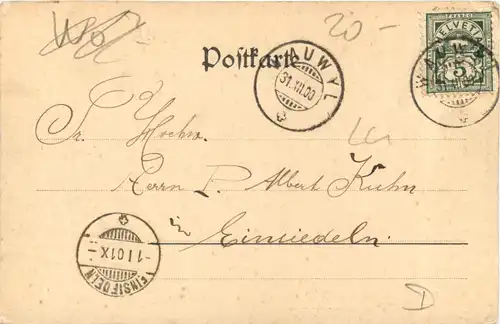 20-
Postkarte
WAUWYL
31.XII.00
HELVETIA
FRANCO
5
WAUWYL
Sr. Hochw.
Herrn P. Albert Kuhn
in
Einsiedeln.
EINSIEDELN
-1 I 01 X-
D